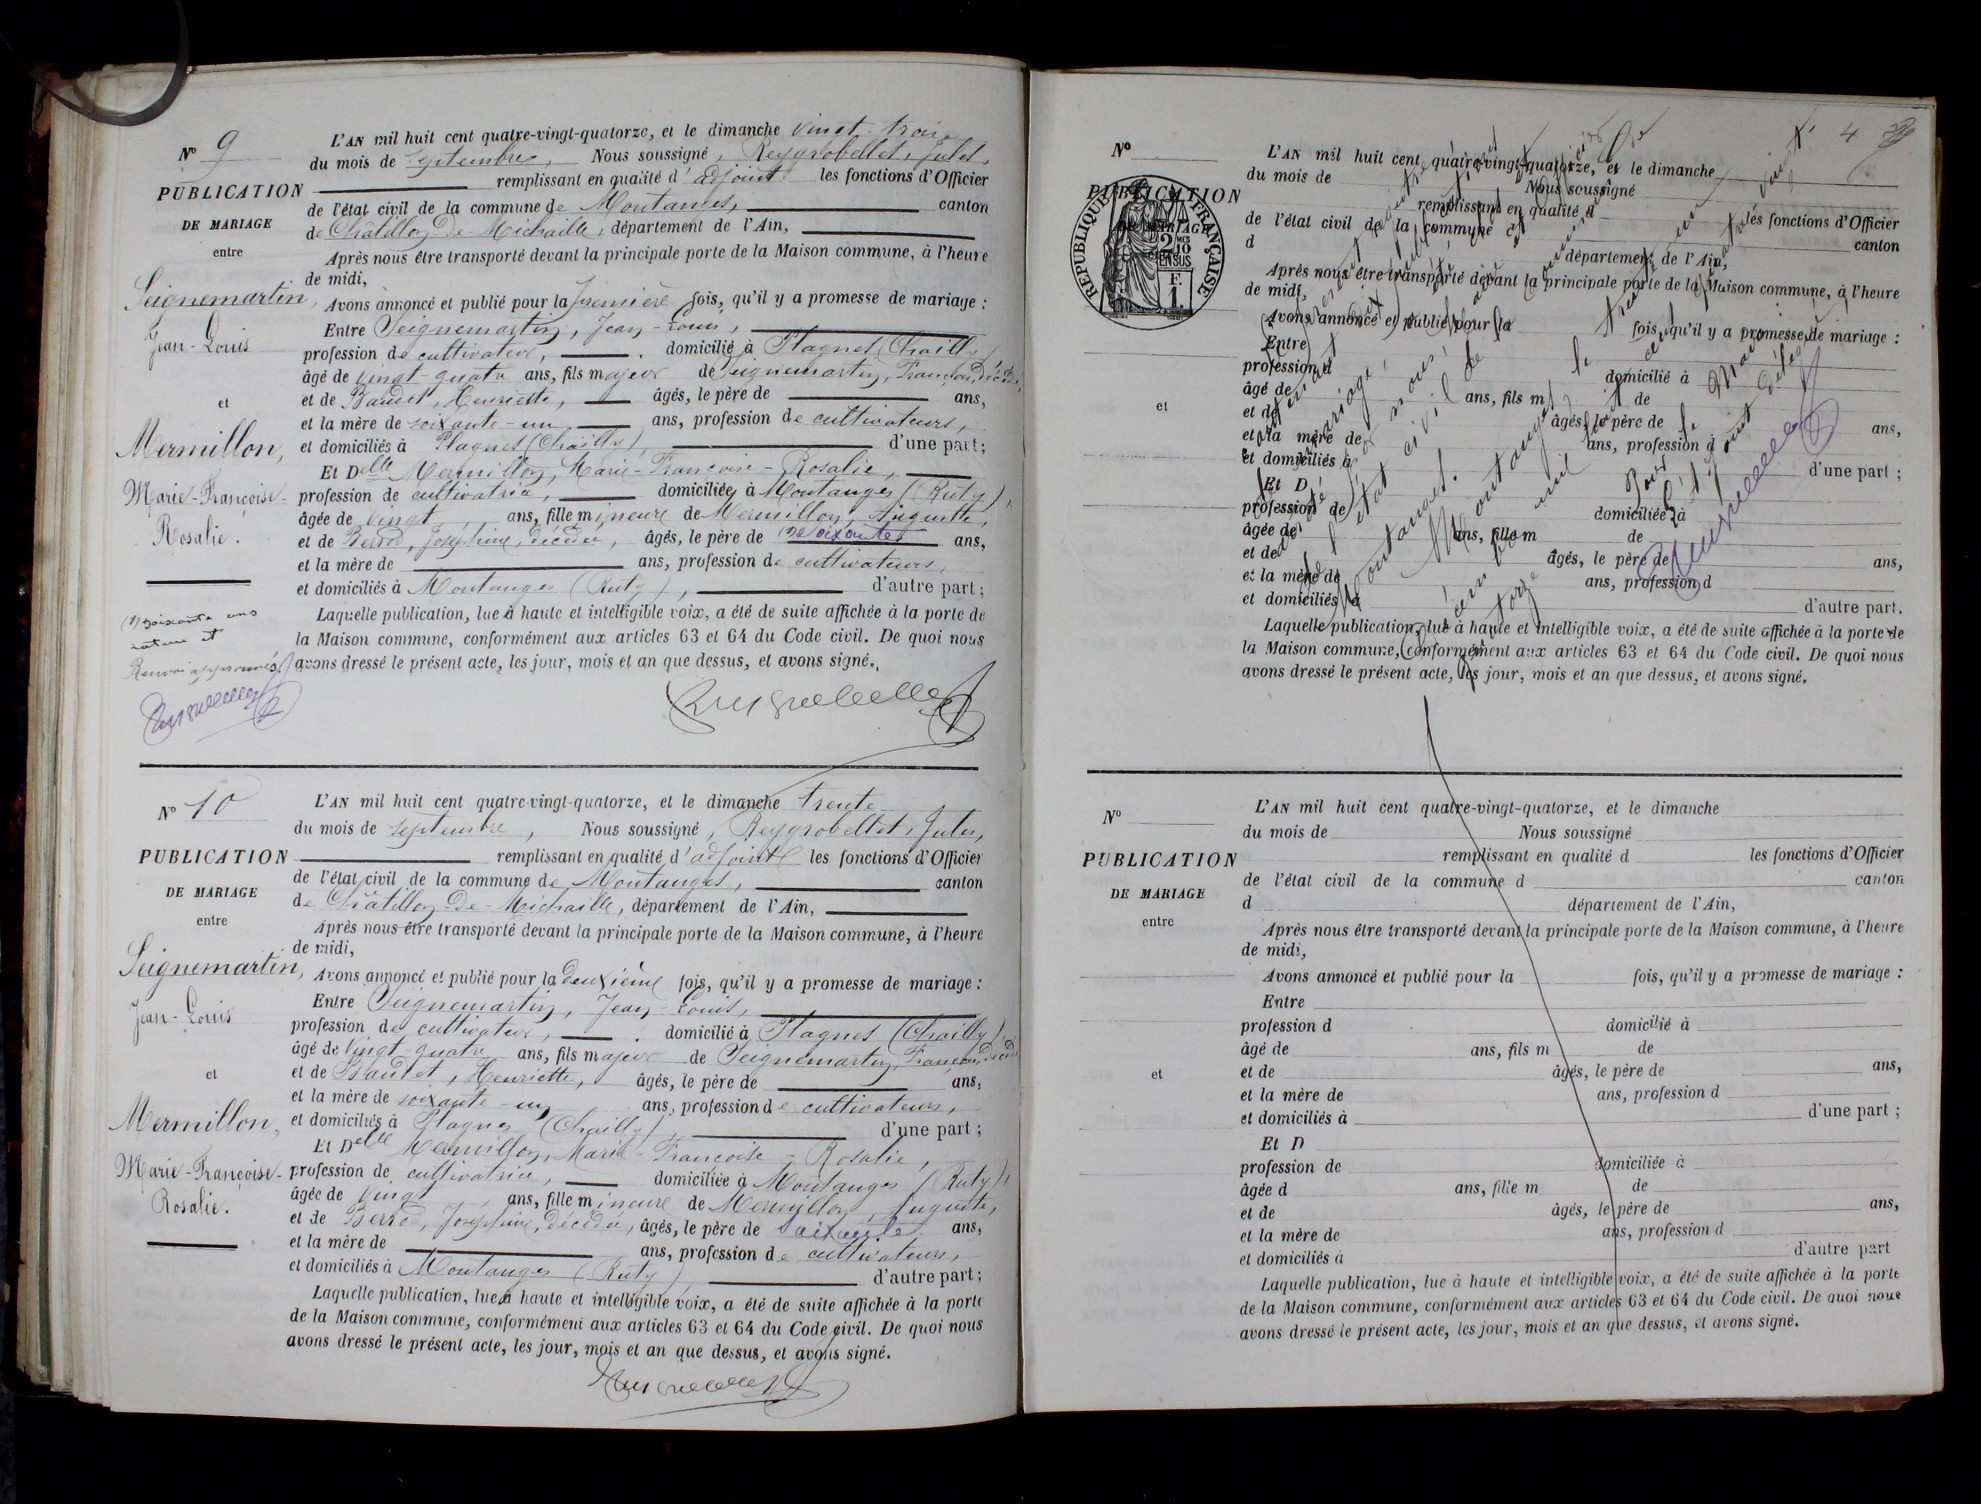 N° 9
PUBLICATION
DE MARIAGE
entre
Seignemartin,
Jean-Louis
et
Mermillon,
Marie-Françoise-
Rosalie.
(1) soixante ans
rature et
Renvoi approuvés
L'AN mil huit cent quatre-vingt-quatorze, et le dimanche vingt-trois
du mois de septembre, Nous soussigné, Reygrobellet, Jules,
remplissant en qualité d'adjoint les fonctions d'Officier
de l'état civil de la commune de Montanges, canton
de Châtillon-de-Michaille, département de l'Ain,
Après nous être transporté devant la principale porte de la Maison commune, à l'heure
de midi,
Avons annoncé et publié pour la première fois, qu'il y a promesse de mariage :
Entre Seignemartin, Jean-Louis,
profession de cultivateur, domicilié à Plagnes (Charilly)
âgé de vingt-quatre ans, fils majeur de Seignemartin, François, décédé,
et de Baudet, Henriette, âgés, le père de ans,
et la mère de soixante-un ans, profession de cultivateurs,
et domiciliés à Plagnes d'une part ;
Et Delle Mermillon, Marie-Françoise-Rosalie,
profession de cultivatrice, domiciliée à Montanges (Ruty),
âgée de vingt ans, fille mineure de Mermillon, Auguste,
et de Berrod, Joséphine, décédée, âgés, le père de (1) soixante ans,
et la mère de ans, profession de cultivateurs,
et domiciliés à Montanges (Ruty), d'autre part ;
Laquelle publication, lue à haute et intelligible voix, a été de suite affichée à la porte de
la Maison commune, conformément aux articles 63 et 64 du Code civil. De quoi nous
avons dressé le présent acte, les jour, mois et an que dessus, et avons signé.
Reygrobellet
N° 10
PUBLICATION
DE MARIAGE
entre
Seignemartin,
Jean-Louis
et
Mermillon,
Marie-Françoise-
Rosalie.
L'AN mil huit cent quatre-vingt-quatorze, et le dimanche trente
du mois de septembre, Nous soussigné, Reygrobellet, Jules,
remplissant en qualité d'adjoint les fonctions d'Officier
de l'état civil de la commune de Montanges, canton
de Châtillon-de-Michaille, département de l'Ain,
Après nous être transporté devant la principale porte de la Maison commune, à l'heure
de midi,
Avons annoncé et publié pour la deuxième fois, qu'il y a promesse de mariage :
Entre Seignemartin, Jean-Louis,
profession de cultivateur, domicilié à Plagnes
âgé de vingt-quatre ans, fils majeur de Seignemartin, François, décédé
et de Baudet, Henriette, âgés, le père de ans,
et la mère de soixante-un ans, profession de cultivateurs,
et domiciliés à Plagnes d'une part ;
Et Delle Mermillon, Marie-Françoise-Rosalie,
profession de cultivatrice, domiciliée à Montanges (Ruty),
âgée de vingt ans, fille mineure de Mermillon, Auguste,
et de Berrod, Joséphine, décédée, âgés, le père de soixante ans,
et la mère de ans, profession de cultivateurs,
et domiciliés à Montanges (Ruty), d'autre part ;
Laquelle publication, lue à haute et intelligible voix, a été de suite affichée à la porte
de la Maison commune, conformément aux articles 63 et 64 du Code civil. De quoi nous
avons dressé le présent acte, les jour, mois et an que dessus, et avons signé.
Reygrobellet
4
N°
PUBLICATION
DE MARIAGE
RÉPUBLIQUE FRANÇAISE
2 MES
10
EN SUS
F.
1.
et
L'AN mil huit cent quatre-vingt-quatorze, et le dimanche
du mois de Nous soussigné
remplissant en qualité d les fonctions d'Officier
de l'état civil de la commune d canton
d département de l'Ain,
Après nous être transporté devant la principale porte de la Maison commune, à l'heure
de midi,
Avons annoncé et publié pour la fois, qu'il y a promesse de mariage :
Entre
profession d domicilié à
âgé de ans, fils m de
et de âgés, le père de ans,
et la mère de ans, profession d
et domiciliés à d'une part ;
Et D
profession de domiciliée à
âgée de ans, fille m de
et de âgés, le père de ans,
et la mère de ans, profession d
et domiciliés à d'autre part.
Laquelle publication, lue à haute et intelligible voix, a été de suite affichée à la porte de
la Maison commune, conformément aux articles 63 et 64 du Code civil. De quoi nous
avons dressé le présent acte, les jour, mois et an que dessus, et avons signé.
mariage,
état civil de
Montanges.
Montanges, le
mil huit cent
Pour le Maire
Reygrobellet
N°
PUBLICATION
DE MARIAGE
entre
et
L'AN mil huit cent quatre-vingt-quatorze, et le dimanche
du mois de Nous soussigné
remplissant en qualité d les fonctions d'Officier
de l'état civil de la commune d canton
d département de l'Ain,
Après nous être transporté devant la principale porte de la Maison commune, à l'heure
de midi,
Avons annoncé et publié pour la fois, qu'il y a promesse de mariage :
Entre
profession d domicilié à
âgé de ans, fils m de
et de âgés, le père de ans,
et la mère de ans, profession d
et domiciliés à d'une part ;
Et D
profession de domiciliée à
âgée d ans, fille m de
et de âgés, le père de ans,
et la mère de ans, profession d
et domiciliés à d'autre part
Laquelle publication, lue à haute et intelligible voix, a été de suite affichée à la porte
de la Maison commune, conformément aux articles 63 et 64 du Code civil. De quoi nous
avons dressé le présent acte, les jour, mois et an que dessus, et avons signé.